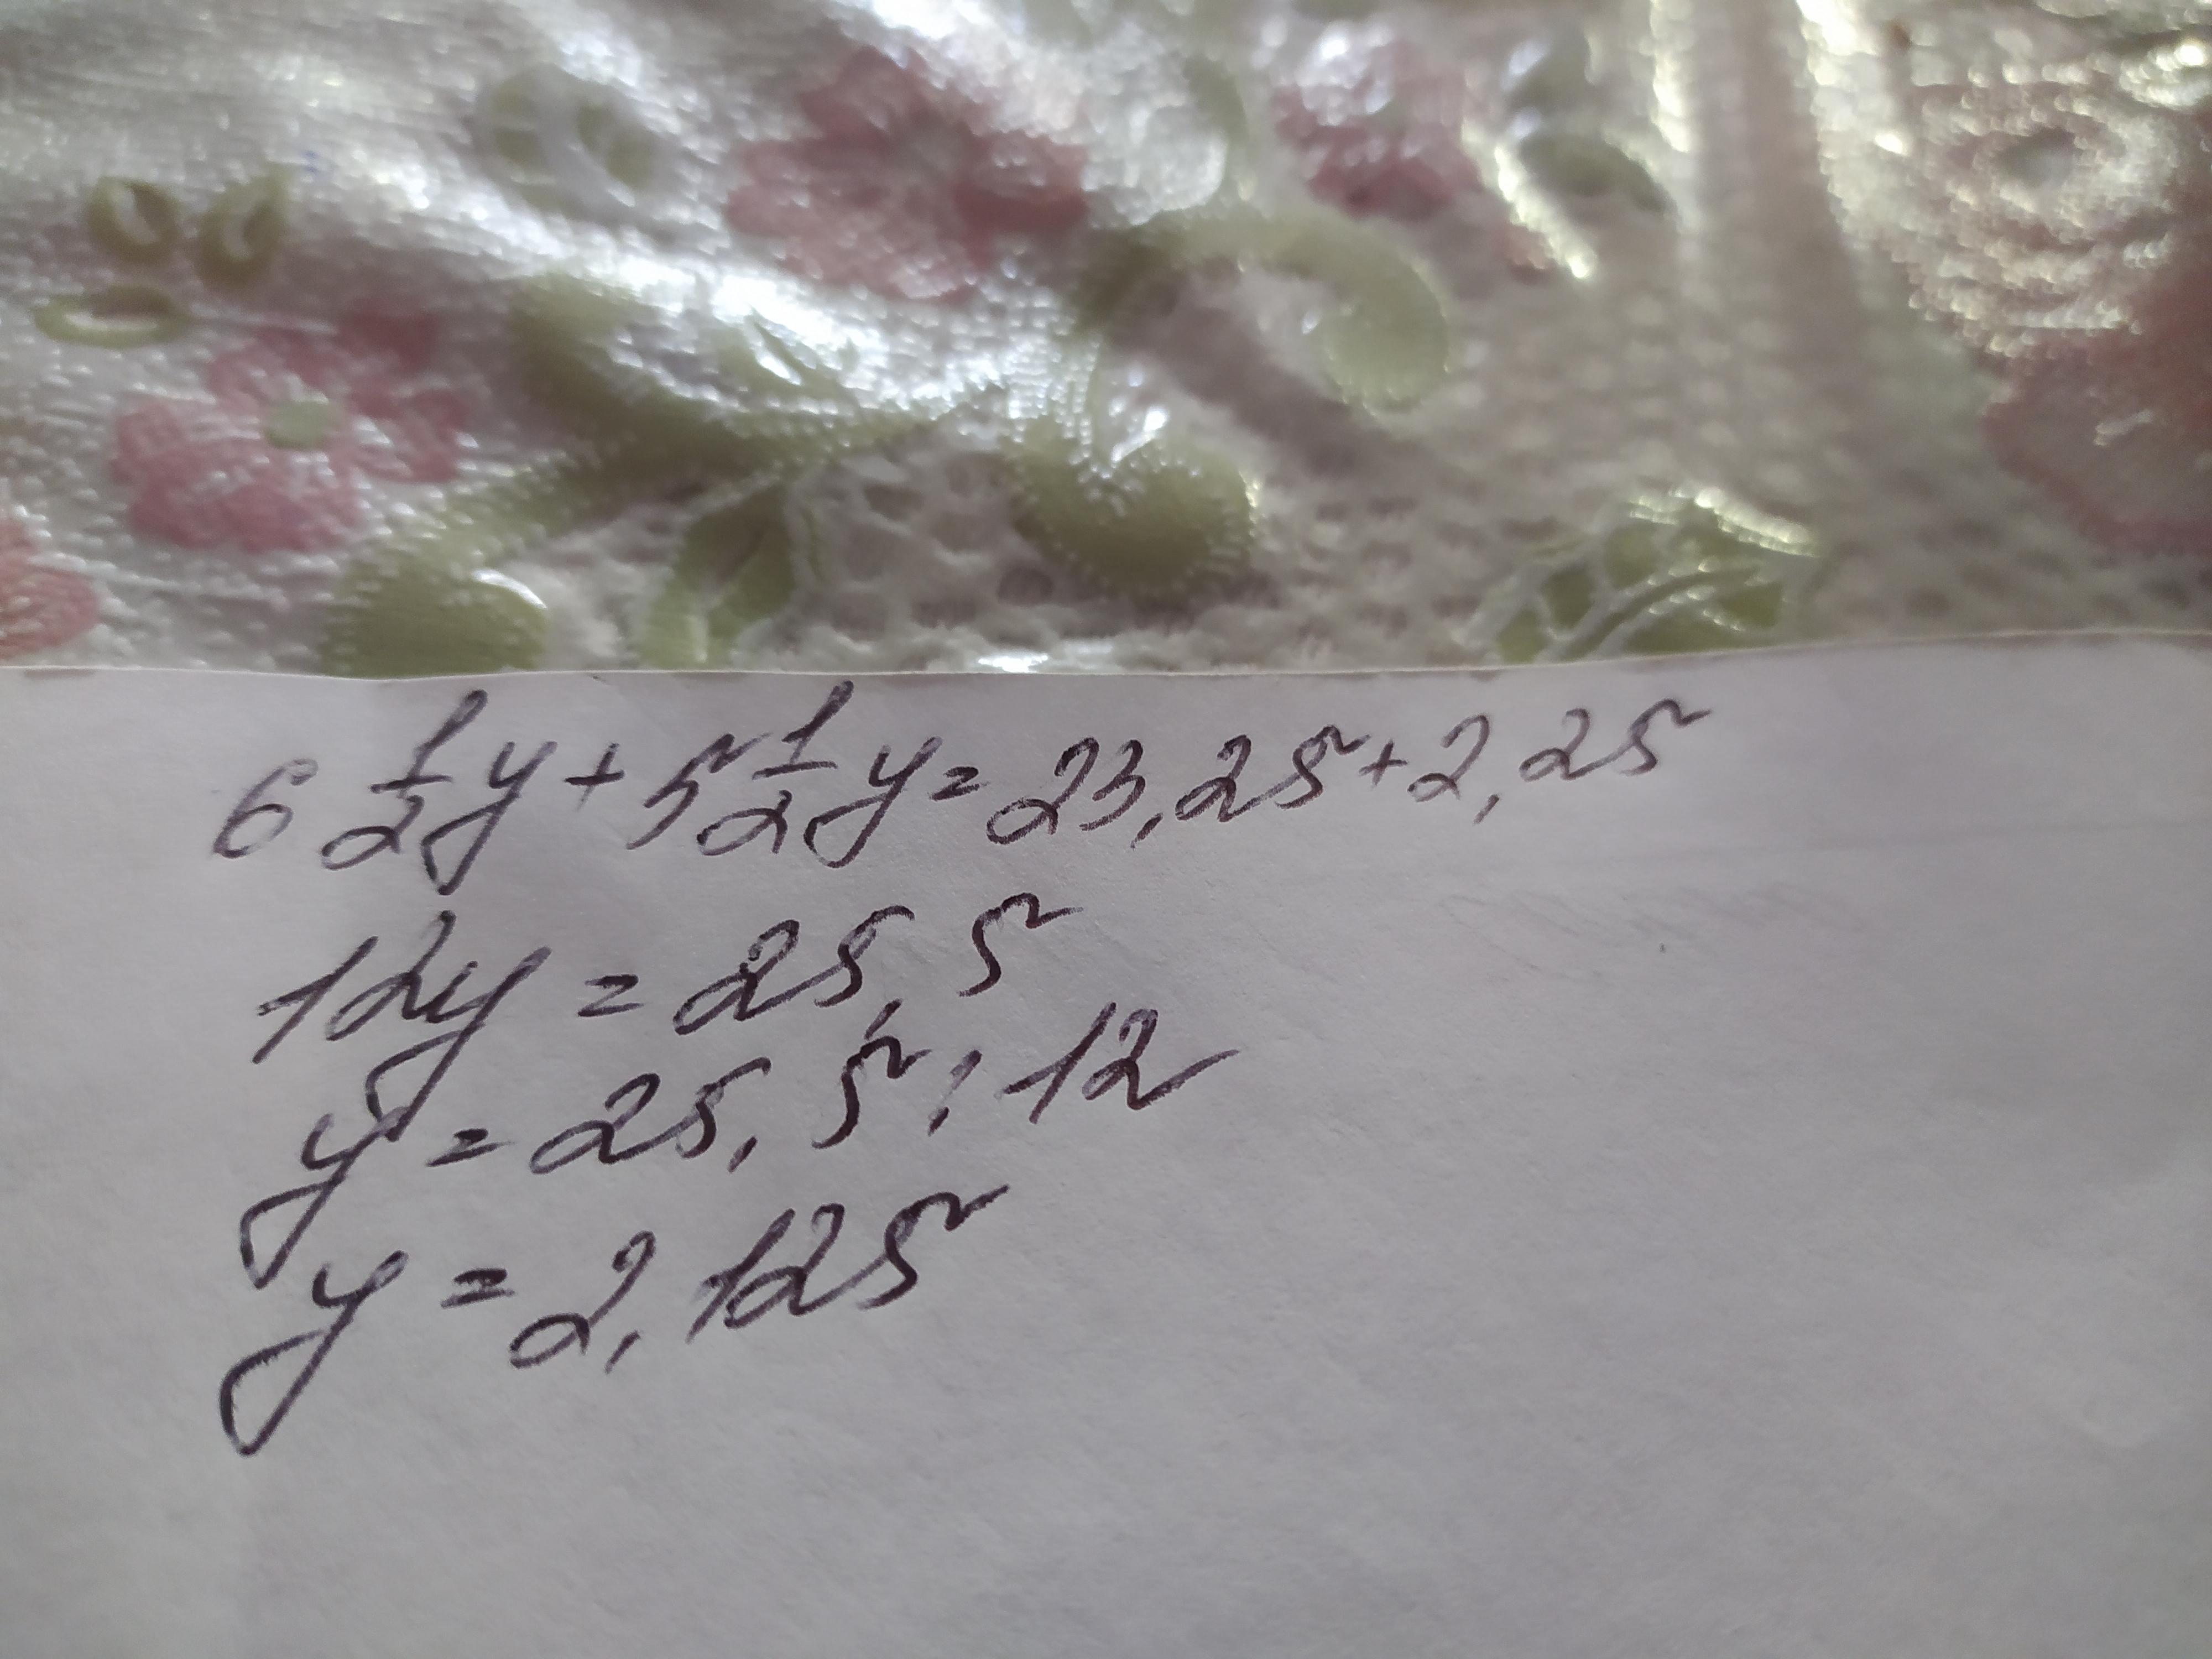 6 1/2 y + 5 1/2 y = 23,25 + 2,25
12y = 25,5
y = 25,5 : 12
y = 2,125